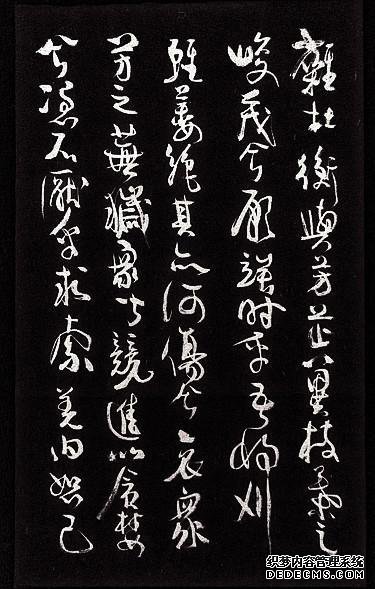 雜杜衡與芳芷冀枝葉之
峻茂兮願竢時乎吾將刈
雖萎絕其亦何傷兮哀眾
芳之蕪穢眾皆競進以貪婪
兮憑不猒乎求索羌內恕己
织梦内容管理系统
DEDECMS.COM